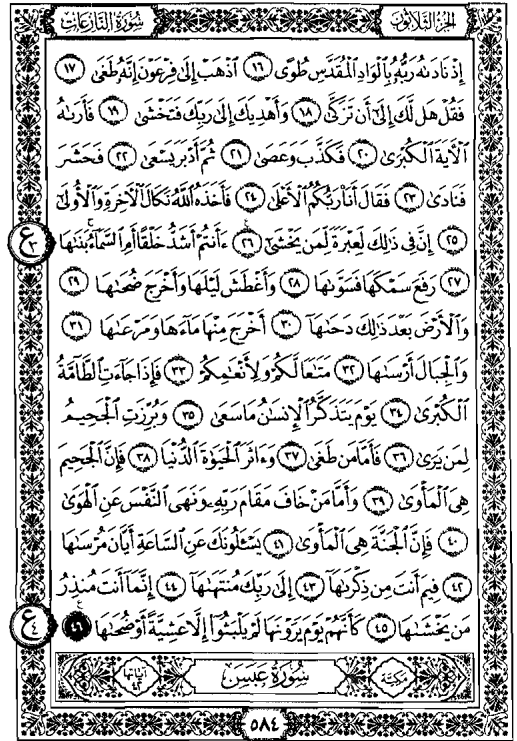 الجزء الثلاثون سورة النازعات
إِذْ نَادَىٰهُ رَبُّهُۥ بِٱلْوَادِ ٱلْمُقَدَّسِ طُوًى ١٦ ٱذْهَبْ إِلَىٰ فِرْعَوْنَ إِنَّهُۥ طَغَىٰ ١٧
فَقُلْ هَل لَّكَ إِلَىٰٓ أَن تَزَكَّىٰ ١٨ وَأَهْدِيَكَ إِلَىٰ رَبِّكَ فَتَخْشَىٰ ١٩ فَأَرَىٰهُ
ٱلْءَايَةَ ٱلْكُبْرَىٰ ٢٠ فَكَذَّبَ وَعَصَىٰ ٢١ ثُمَّ أَدْبَرَ يَسْعَىٰ ٢٢ فَحَشَرَ
فَنَادَىٰ ٢٣ فَقَالَ أَنَا۠ رَبُّكُمُ ٱلْأَعْلَىٰ ٢٤ فَأَخَذَهُ ٱللَّهُ نَكَالَ ٱلْءَاخِرَةِ وَٱلْأُولَىٰٓ
٢٥ إِنَّ فِى ذَٰلِكَ لَعِبْرَةً لِّمَن يَخْشَىٰٓ ٢٦ ءَأَنتُمْ أَشَدُّ خَلْقًا أَمِ ٱلسَّمَآءُ بَنَىٰهَا
ع ٣
٢٧ رَفَعَ سَمْكَهَا فَسَوَّىٰهَا ٢٨ وَأَغْطَشَ لَيْلَهَا وَأَخْرَجَ ضُحَىٰهَا ٢٩
وَٱلْأَرْضَ بَعْدَ ذَٰلِكَ دَحَىٰهَآ ٣٠ أَخْرَجَ مِنْهَا مَآءَهَا وَمَرْعَىٰهَا ٣١
وَٱلْجِبَالَ أَرْسَىٰهَا ٣٢ مَتَٰعًا لَّكُمْ وَلِأَنْعَٰمِكُمْ ٣٣ فَإِذَا جَآءَتِ ٱلطَّآمَّةُ
ٱلْكُبْرَىٰ ٣٤ يَوْمَ يَتَذَكَّرُ ٱلْإِنسَٰنُ مَا سَعَىٰ ٣٥ وَبُرِّزَتِ ٱلْجَحِيمُ
لِمَن يَرَىٰ ٣٦ فَأَمَّا مَن طَغَىٰ ٣٧ وَءَاثَرَ ٱلْحَيَوٰةَ ٱلدُّنْيَا ٣٨ فَإِنَّ ٱلْجَحِيمَ
هِىَ ٱلْمَأْوَىٰ ٣٩ وَأَمَّا مَنْ خَافَ مَقَامَ رَبِّهِۦ وَنَهَى ٱلنَّفْسَ عَنِ ٱلْهَوَىٰ
٤٠ فَإِنَّ ٱلْجَنَّةَ هِىَ ٱلْمَأْوَىٰ ٤١ يَسْـَٔلُونَكَ عَنِ ٱلسَّاعَةِ أَيَّانَ مُرْسَىٰهَا
٤٢ فِيمَ أَنتَ مِن ذِكْرَىٰهَآ ٤٣ إِلَىٰ رَبِّكَ مُنتَهَىٰهَآ ٤٤ إِنَّمَآ أَنتَ مُنذِرُ
مَن يَخْشَىٰهَا ٤٥ كَأَنَّهُمْ يَوْمَ يَرَوْنَهَا لَمْ يَلْبَثُوٓا۟ إِلَّا عَشِيَّةً أَوْ ضُحَىٰهَا ٤٦
ع ٤
مكية سورة عبس آياتها ٤٢
٥٨٤